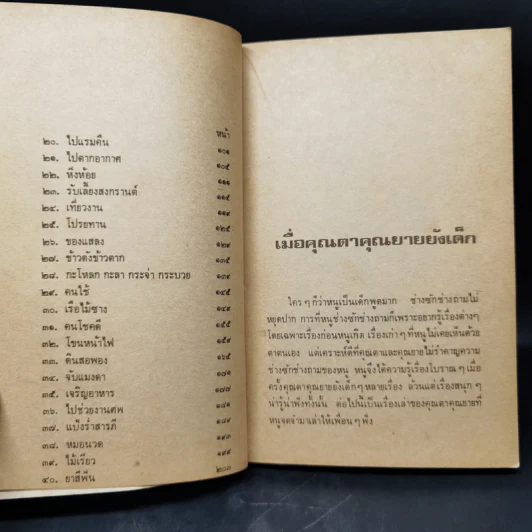 หน้า
๒๐. ไปแรมคืน ๑๐๑
๒๑. ไปตากอากาศ ๑๐๕
๒๒. หิ่งห้อย ๑๑๑
๒๓. รับเลี้ยงสงกรานต์ ๑๑๕
๒๔. เที่ยวงาน ๑๑๙
๒๕. โปรยทาน ๑๒๕
๒๖. ของแสลง ๑๒๙
๒๗. ข้าวตังข้าวตาก ๑๓๕
๒๘. กะโหลก กะลา กระจ่า กระบวย ๑๓๙
๒๙. คนใช้ ๑๔๕
๓๐. เรือไม้ซาง ๑๔๙
๓๑. คนโชคดี ๑๕๕
๓๒. โขนหน้าไฟ ๑๕๙
๓๓. ดินสอพอง ๑๖๕
๓๔. จับแมงดา
๓๕. เจริญอาหาร ๑๗๗
๓๖. ไปช่วยงานศพ
๓๗. แป้งร่ำสารภี ๑๘๙
๓๘. หมอนวด ๑๙๓
๓๙. ไม้เรียว ๑๙๙
๔๐. ยาสีฟัน ๒๐๓
เมื่อคุณตาคุณยายยังเด็ก
ใคร ๆ ก็ว่าหนูเป็นเด็กพูดมาก ช่างซักช่างถามไม่
หยุดปาก การที่หนูช่างซักช่างถามก็เพราะอยากรู้เรื่องต่างๆ
โดยเฉพาะเรื่องก่อนหนูเกิด เรื่องเก่า ๆ ที่หนูไม่เคยเห็นด้วย
ตาตนเอง แต่เคราะห์ดีที่คุณตาและคุณยายไม่รำคาญความ
ช่างซักช่างถามของหนู หนูจึงได้ความรู้เรื่องโบราณ ๆ เมื่อ
ครั้งคุณตาคุณยายยังเด็กๆ หลายเรื่อง ล้วนแต่เรื่องสนุก ๆ
น่ารู้น่าฟังทั้งนั้น ต่อไปนี้เป็นเรื่องเล่าของคุณตาคุณยายที่
หนูจดจำมาเล่าให้เพื่อน ๆ ฟัง